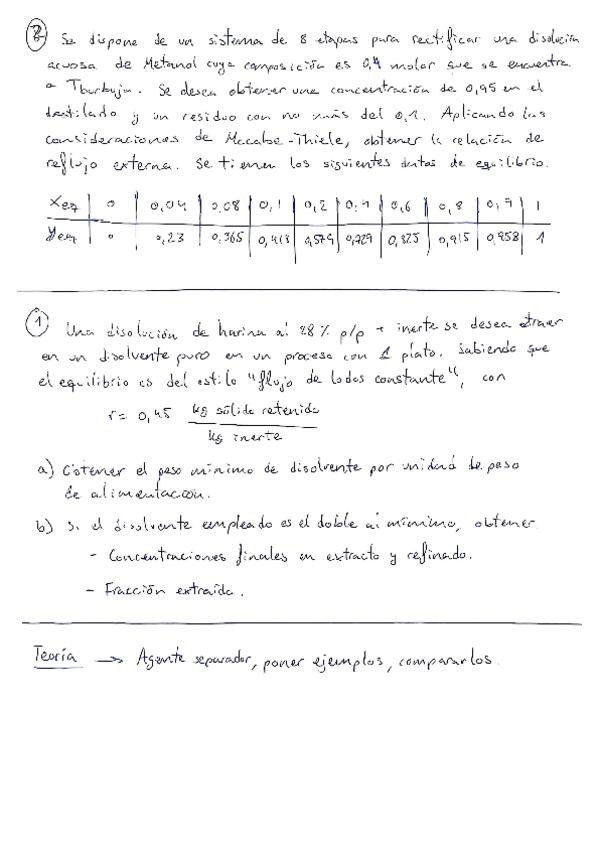 2 Se dispone de un sistema de 8 etapas para rectificar una disolución
acuosa de Metanol cuya composición es 0,4 molar que se encuentra
a Tburbuja. Se desea obtener una concentración de 0,95 en el
destilado y un residuo con no más del 0,1. Aplicando las
consideraciones de Mccabe-Thiele, obtener la relación de
reflujo externa. Se tienen los siguientes datos de equilibrio.
Xeq | 0 | 0,04 | 0,08 | 0,1 | 0,2 | 0,4 | 0,6 | 0,8 | 0,9 | 1
Yeq | 0 | 0,23 | 0,365 | 0,418 | 0,579 | 0,729 | 0,825 | 0,915 | 0,958 | 1
1 Una disolución de harina al 28 % p/p + inerte se desea extraer
en un disolvente puro en un proceso con 1 plato. Sabiendo que
el equilibrio es del estilo "flujo de lodos constante", con
r = 0,45 kg sólido retenido
kg inerte
a) Obtener el peso mínimo de disolvente por unidad de peso
de alimentacion.
b) Si el disolvente empleado es el doble al mínimo, obtener
- Concentraciones finales en extracto y refinado.
- Fracción extraída.
Teoría → Agente separador, poner ejemplos, compararlos.